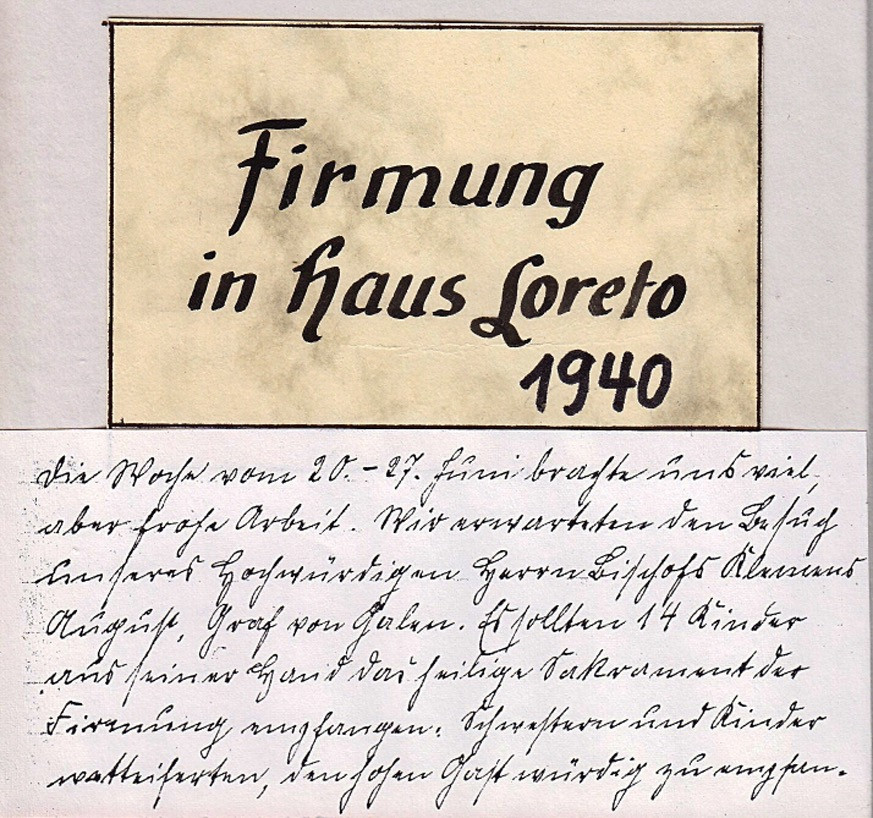 Firmung
in Haus Loreto
1940
Die Woche vom 20.-27. Juni brachte uns viel,
aber frohe Arbeit. Wir erwarteten den Besuch
unseres Hochwürdigen Herrn Bischofs Klemens
August, Graf von Galen. Es sollten 14 Kinder
aus seiner Hand das heilige Sakrament der
Firmung empfangen. Schwestern und Kinder
wetteiferten, den hohen Gast würdig zu empfan-